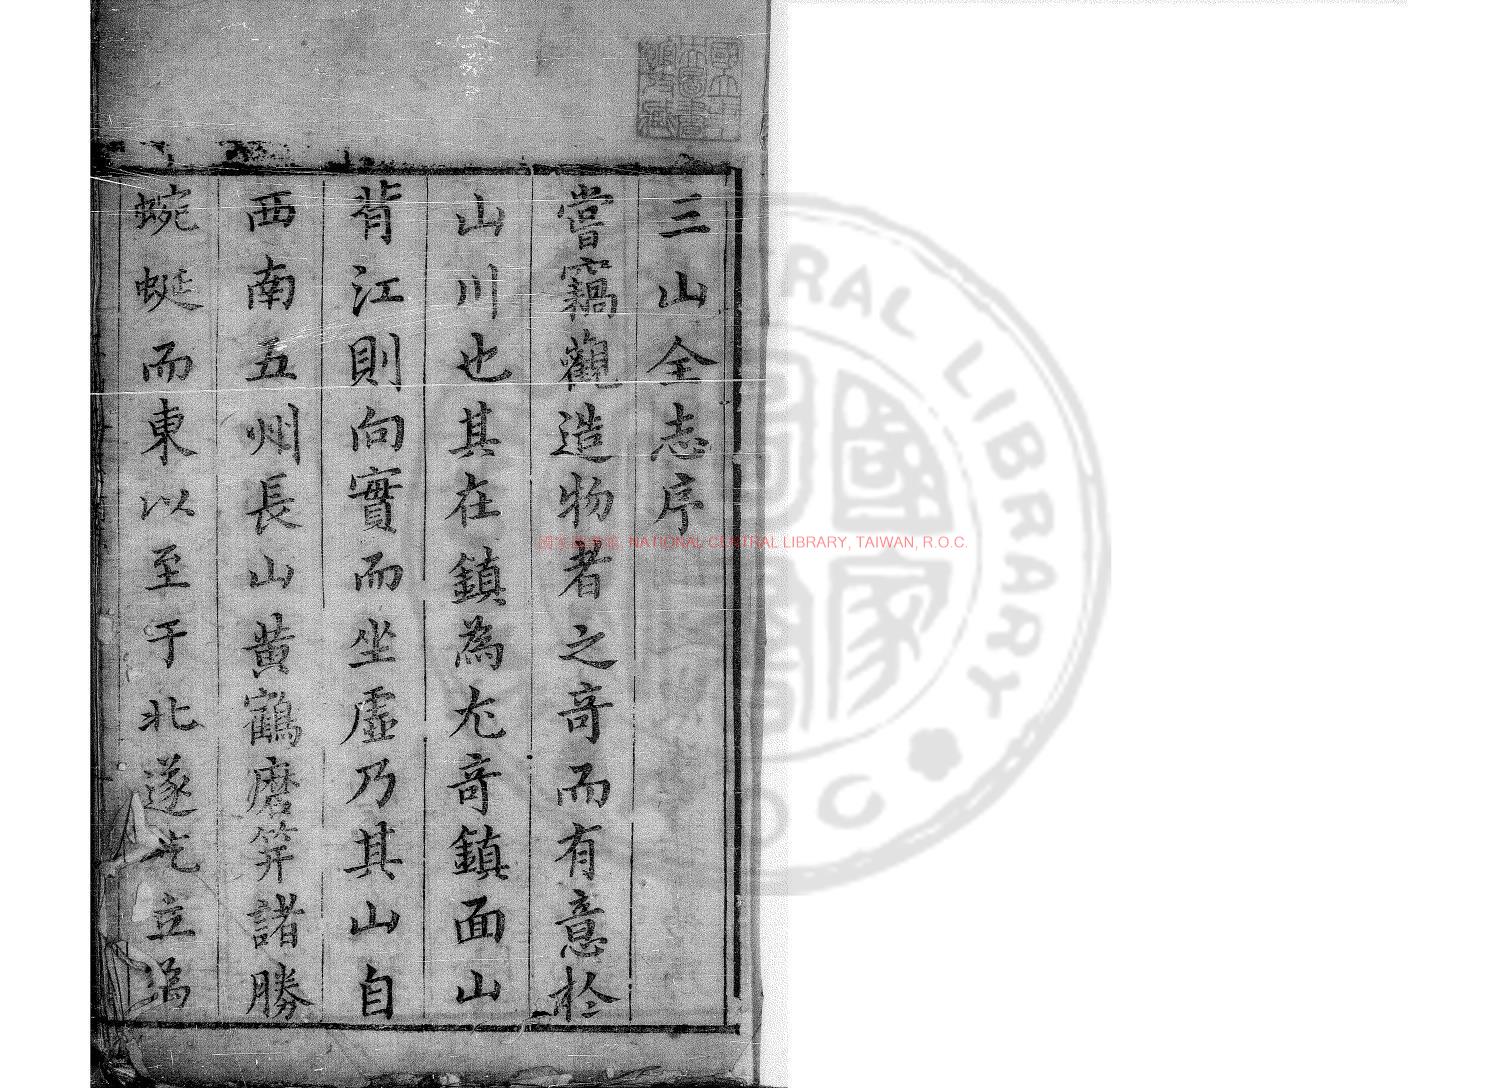 三山全志序
嘗竊觀造物者之竒而有意於
山川也其在鎮為尤竒鎮面山
背江則向實而坐虛乃其山自
西南五州長山黄鶴磨笄諸勝
蜿蜒而東以至于北遂屹立為
國立中央圖書館收藏
國家圖書館, NATIONAL CENTRAL LIBRARY, TAIWAN, R.O.C.